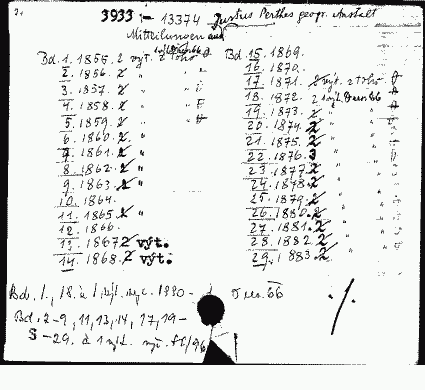 3933 - 13374 Justus Perthes geogr. Anstalt
Mitteilungen aus
Bd. 1. 1855. 2 výt. z toho
2. 1856. 2 "
3. 1857. 2 "
4. 1858. 2 "
5. 1859. 2 "
6. 1860. 2 "
7. 1861. 2 "
8. 1862. 2 "
9. 1863. 2 "
10. 1864.
11. 1865. 2 "
12. 1866.
13. 1867 2 výt.
14. 1868. 2 výt.
Bd. 15. 1869.
16. 1870.
17. 1871. 2 výt. z toho
18. 1872. 2 výt.
19. 1873. 2 "
20. 1874. 2 "
21. 1875. 2 "
22. 1876. 3 "
23. 1877. 2 "
24. 1878. 2 "
25. 1879. 2 "
26. 1880. 2 "
27. 1881. 2 "
28. 1882. 2 "
29. 1883. 2 "
Bd. 1, 18.
Bd. 2-9, 11, 13, 14, 17, 19-
-29. à 1 výt.